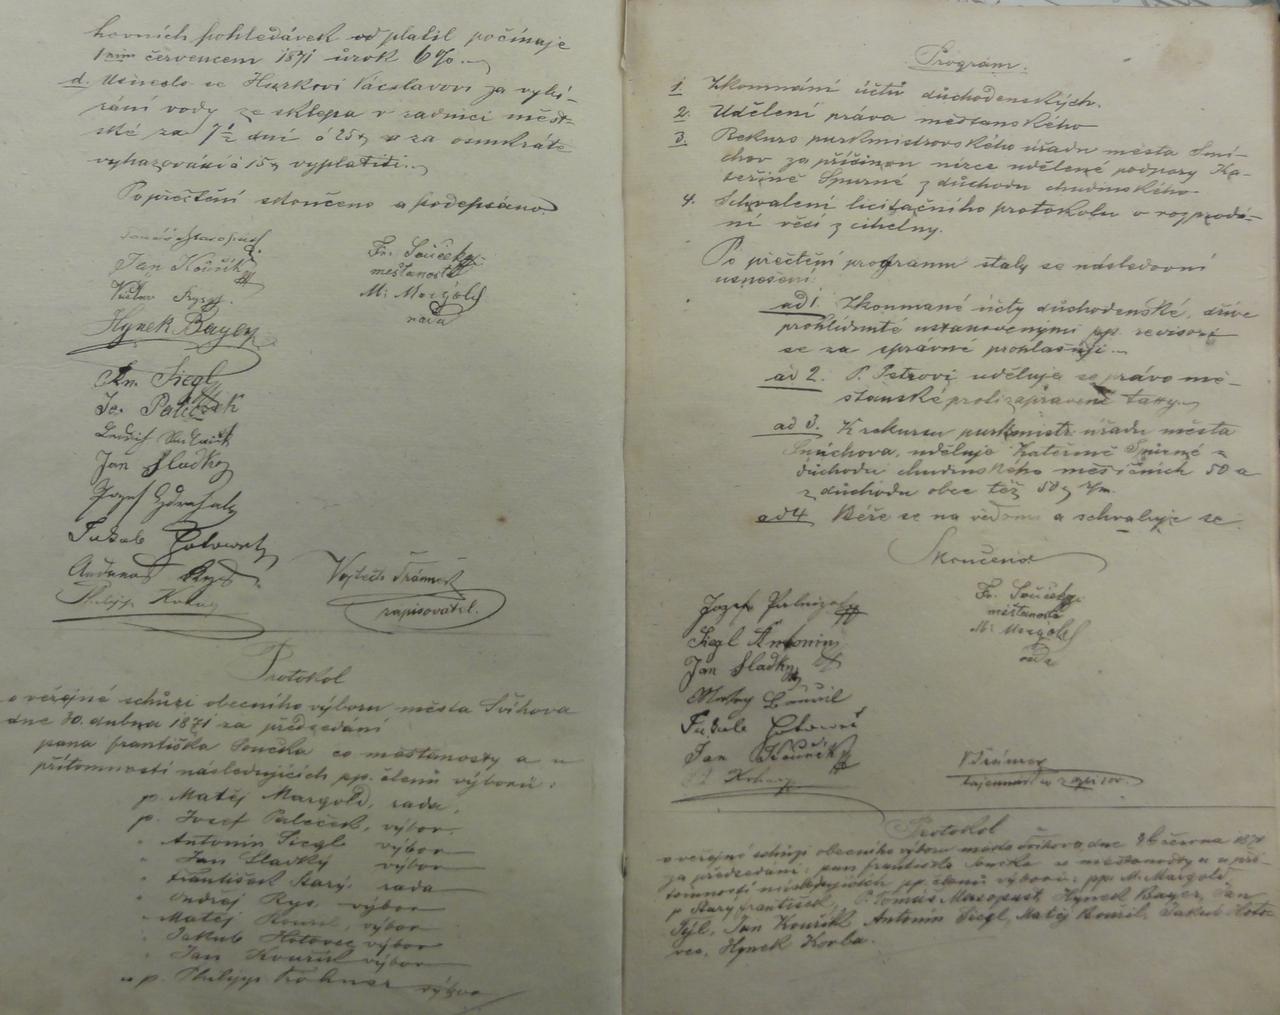 hovních pohledávek od platil počínaje
1ním červencem 1871 úrok 6%.
d. Usneslo se Hurkovi Václavovi za vybí-
rání vody ze sklepa v radnici měst-
ské za 7½ dní á 25 a za osmkráte
vyhazování á 15 vyplatiti.
Po přečtení skončeno a podepsáno.
Jan Kouřík
Václav
Hynek Bayer
Fr. Souček
měšťanosta
M: Margold
rada
An. Siegl
Jo. Paleček
Jan Sladký
Jozef Zdrahal
Jakub Hotovec
Philipp Kohner
Vojtěch Trámer
zapisovatel.
Protokol
o veřejné schůzi obecního výboru města Švihova
dne 30. dubna 1871 za předsedání
pana františka Součka co měšťanosty a u
přítomnosti následujících pp. členů výborů:
p. Matěj Margold, rada,
p. Josef Paleček, výbor
" Antonín Siegl výbor
" Jan Sladký výbor
" František Starý, rada
" Ondřej Rys výbor
" Matěj Kouril, výbor
" Jakub Hotovec výbor
" Jan Kouřík výbor
a p. Philipp Kohner výbor
Program.
1. Zkoumání účtů důchodenských.
2. Udělení práva měšťanského
3. Rekurs purkmistrovského úřadu města Smí-
chov za příčinou nízce udělené podpory Ka-
teřině Spurné z důchodu chudinského
4. Schválení licitačního protokolu o rozprodá-
ní věcí z cihelny.
Po přečtení programu staly se následovní
usnešení:
ad 1. Zkoumané účty důchodenské, dříve
prohlídnuté ustanovenými pp. revisory
se za správné prohlašují.
ad 2. P. Petrovi uděluje se právo mě-
šťanské proti zapravené taxy.
ad 3. K rekursu purkmistr. úřadu města
Smíchova, uděluje Kateřině Spurné z
důchodu chudinského měsíčních 50 a
z důchodu obec též 50
ad 4 Béře se na vědomí a schvaluje se
Skončeno
Jozef
Siegl Antonin
Jan Sladký
Matěj Kouřil
Jakub Hotovec
Jan Kouřík
Fr. Souček
měšťanosta
M: Margold
rada
V Trámer
tajemník a zapisov.
Protokol
o veřejné schůzi obecního výboru města Švihova dne června 1871
za předsedání: pan františka Součka co měšťanosty a u pří-
tomnosti následujících pp. členů výborů: pp. M. Margold
p Starý František, P. Tomáš Masopust, Hynek Bayer, Jan
Tyjl, Jan Kouřík, Antonín Siegl, Matěj Kouřil, Jakub Hoto-
vec, Hynek Korba.